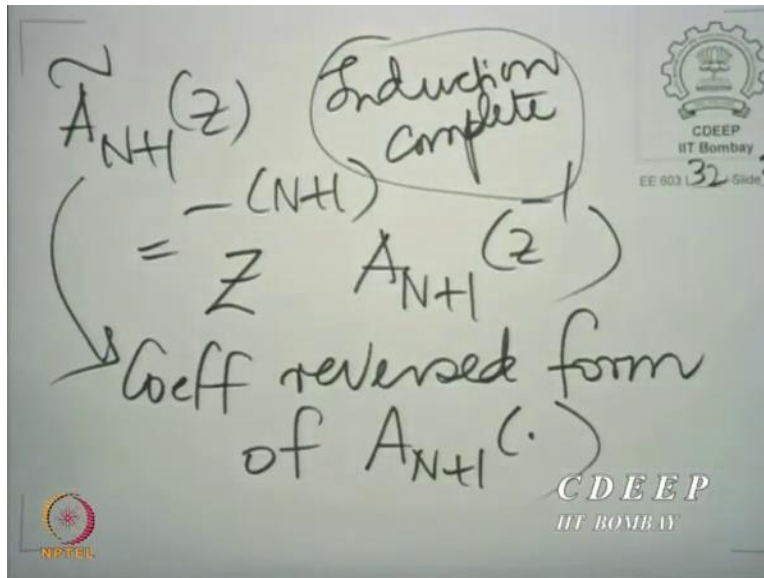 Ã_{N+1}(z)
Induction
complete
= z^{-(N+1)} A_{N+1}(z^{-1})
Coeff reversed form
of A_{N+1}(.)
CDEEP
IIT Bombay
EE 603 L 32 / Slide
CDEEP
IIT BOMBAY
NPTEL